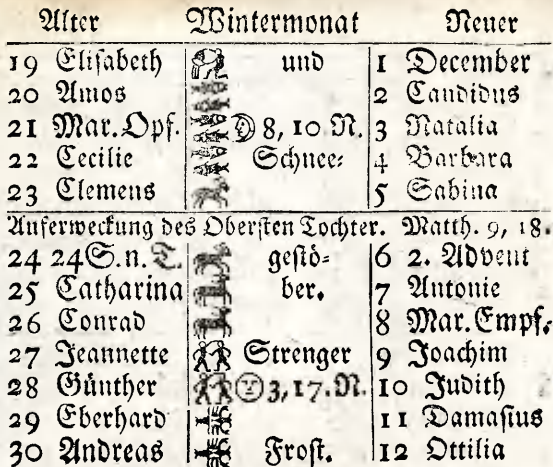 Alter Wintermonat Neuer
19 Elisabeth und 1 December
20 Amos 2 Candidus
21 Mar. Opf. 8, 10. N. 3 Natalia
22 Cecilie Schnee- 4 Barbara
23 Clemens 5 Sabina
Auferweckung des Obersten Tochter. Matth. 9, 18.
24 24 S. n. T. gestö- 6 2. Advent
25 Catharina ber. 7 Antonie
26 Conrad 8 Mar. Empf.
27 Jeannette Strenger 9 Joachim
28 Günther 3, 17. N. 10 Judith
29 Eberhard 11 Damasius
30 Andreas Frost. 12 Ottilia